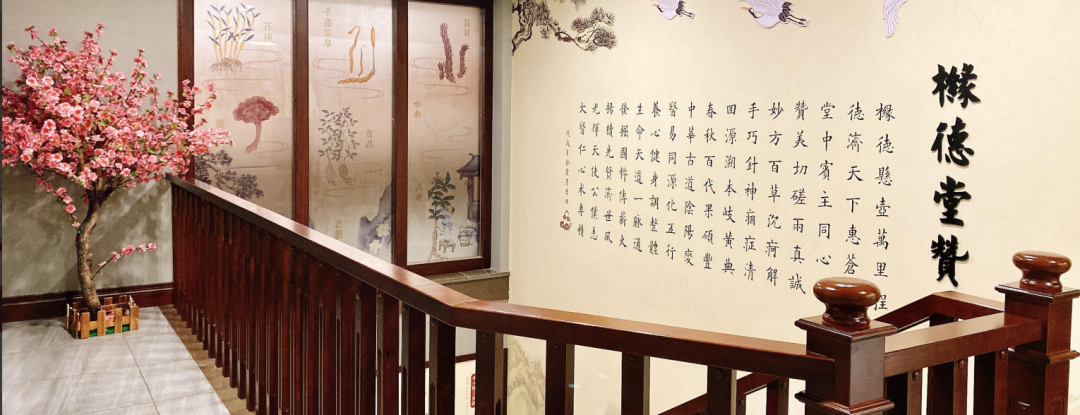 櫞德堂贊
櫞德懸壺萬里程
德濟天下惠蒼
堂中賓主同心
贊美切磋兩真誠
妙方百草沉疴解
手巧針神痼症清
回源溯本岐黃典
春秋百代果碩豐
中華古道陰陽變
醫易同源化五行
養心健身調整體
生命天道一脉通
發掘國哲傳薪火
揚續先賢濟世風
光輝天使公侯志
大醫仁心术專精
石斛
冬蟲夏草